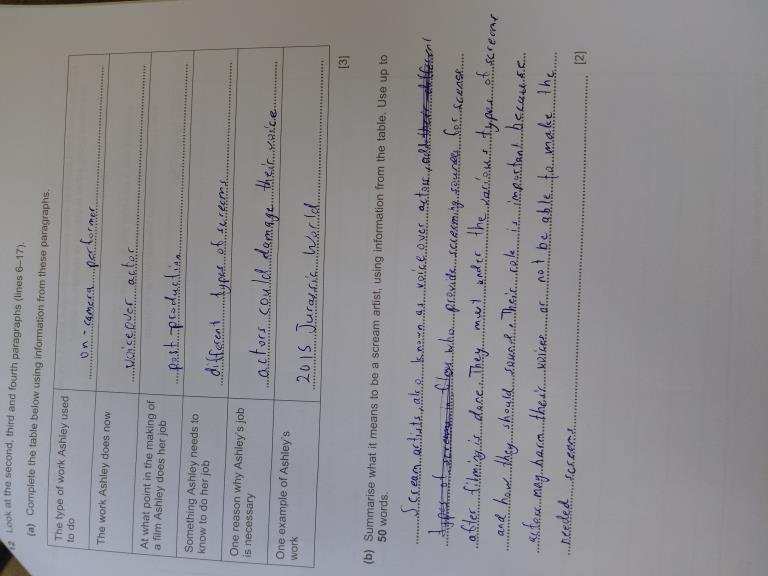 12 Look at the second, third and fourth paragraphs (lines 6–17).
(a) Complete the table below using information from these paragraphs.
The type of work Ashley used to do
on-camera performer
The work Ashley does now
voiceover actor
At what point in the making of a film Ashley does her job
post-production
Something Ashley needs to know to do her job
different types of screams
One reason why Ashley's job is necessary
actors could damage their voice
One example of Ashley's work
2015 Jurassic World
[3]
(b) Summarise what it means to be a scream artist, using information from the table. Use up to
50 words.
Scream artists, also known as voice over actors, all their different
types of screams in films who provide screaming sounds for scenes
after filming is done. They must under the various types of screams
and how they should sound. Their role is important because
actors may harm their voices or not be able to make the
needed screams
[2]